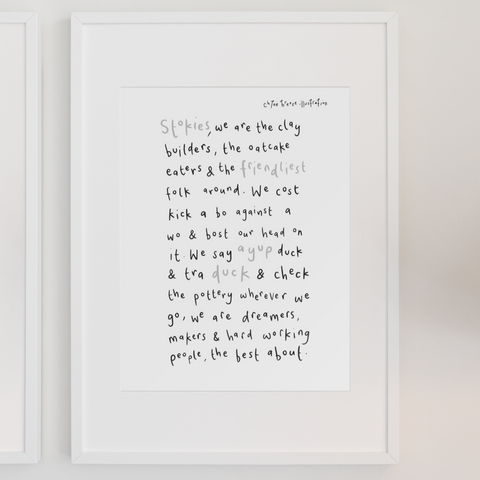 chloe
illustration
Stokies, we are the clay
builders, the oatcake
eaters & the friendliest
folk around. We cost
kick a bo against a
wo & bost our head on
it. We say ayup duck
& tra duck & check
the pottery wherever we
go, we are dreamers,
makers & hard working
people, the best about.